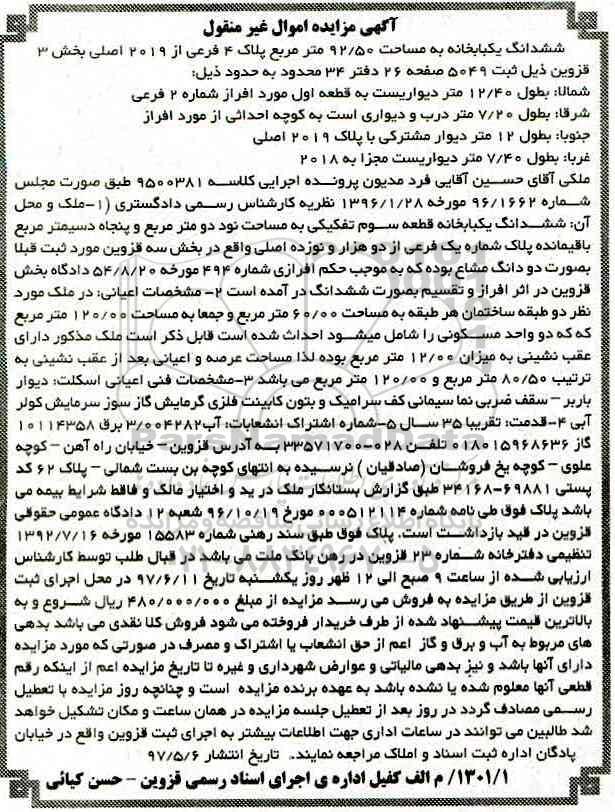 آگهی مزایده اموال غیر منقول
ششدانگ یکبابخانه به مساحت ۹۲/۵۰ متر مربع پلاک ۴ فرعی از ۲۰۱۹ اصلی بخش ۳
قزوین ذیل ثبت ۵۰۴۹ صفحه ۲۶ دفتر ۳۴ محدود به حدود ذیل:
شمالا: بطول ۱۲/۴۰ متر دیواریست به قطعه اول مورد افراز شماره ۲ فرعی
شرقا: بطول ۷/۲۰ متر درب و دیواری است به کوچه احداثی از مورد افراز
جنوبا: بطول ۱۲ متر دیوار مشترکی با پلاک ۲۰۱۹ اصلی
غربا: بطول ۷/۴۰ متر دیواریست مجزا به ۲۰۱۸
ملکی آقای حسین آقایی فرد مدیون پرونده اجرایی کلاسه ۹۵۰۰۳۸۱ طبق صورت مجلس
شماره ۹۶/۱۶۶۲ مورخه ۱۳۹۶/۱/۲۸ نظریه کارشناس رسمی دادگستری (۱-ملک و محل
آن: ششدانگ یکبابخانه قطعه سوم تفکیکی به مساحت نود دو متر مربع و پنجاه دسیمتر مربع
باقیمانده پلاک شماره یک فرعی از دو هزار و نوزده اصلی واقع در بخش سه قزوین مورد ثبت قبلا
بصورت دو دانگ مشاع بوده که به موجب حکم افرازی شماره ۴۹۴ مورخه ۵۴/۸/۲۰ دادگاه بخش
قزوین در اثر افراز و تقسیم بصورت ششدانگ در آمده است ۲- مشخصات اعیانی: در ملک مورد
نظر دو طبقه ساختمان هر طبقه به مساحت ۶۰/۰۰ متر مربع و جمعا به مساحت ۱۲۰/۰۰ متر مربع
که که دو واحد مسکونی را شامل میشود احداث شده است قابل ذکر است ملک مذکور دارای
عقب نشینی به میزان ۱۲/۰۰ متر مربع بوده لذا مساحت عرصه و اعیانی بعد از عقب نشینی به
ترتیب ۸۰/۵۰ متر مربع و ۱۲۰/۰۰ متر مربع می باشد ۳-مشخصات فنی اعیانی اسکلت: دیوار
باربر – سقف ضربی نما سیمانی کف سرامیک و بتون کابینت فلزی گرمایش گاز سوز سرمایش کولر
آبی ۴-قدمت: تقریبا ۳۵ سال ۵-شماره اشتراک انشعابات: آب ۳/۰۰۴۲۸۲ برق ۱۰۱۱۴۳۵۸
گاز ۰۱۸۰۱۵۹۶۸۶۳۶ تلفن ۰۲۸-۳۳۵۷۱۷۰۰ به آدرس قزوین- خیابان راه آهن – کوچه
علوی – کوچه یخ فروشان (صادقیان) نرسیده به انتهای کوچه بن بست شمالی – پلاک ۶۲ کد
پستی ۶۹۸۸۱-۳۴۱۶۸ طبق گزارش بستانکار ملک در ید و اختیار مالک و فاقط شرایط بیمه می
باشد پلاک فوق طی نامه شماره ۰۰۰۵۱۲۱۱۴ مورخ ۹۶/۱۰/۱۹ شعبه ۱۲ دادگاه عمومی حقوقی
قزوین در قید بازداشت است. پلاک فوق طبق سند رهنی شماره ۱۵۵۸۳ مورخه ۱۳۹۲/۷/۱۶
تنظیمی دفترخانه شماره ۲۲ قزوین در رهن بانک ملت می باشد در قبال طلب توسط کارشناس
ارزیابی شده از ساعت ۹ صبح الی ۱۲ ظهر روز یکشنبه تاریخ ۹۷/۶/۱۱ در محل اجرای ثبت
قزوین از طریق مزایده به فروش می رسد مزایده از مبلغ ۴۸۰/۰۰۰/۰۰۰ ریال شروع و به
بالاترین قیمت پیشنهاد شده از طرف خریدار فروخته می شود فروش کلا نقدی می باشد بدهی
های مربوط به آب و برق و گاز اعم از حق انشعاب یا اشتراک و مصرف در صورتی که مورد مزایده
دارای آنها باشد و نیز بدهی مالیاتی و عوارض شهرداری و غیره تا تاریخ مزایده اعم از اینکه رقم
قطعی آنها معلوم شده یا نشده باشد به عهده برنده مزایده است و چنانچه روز مزایده با تعطیل
رسمی مصادف گردد در روز بعد از تعطیل جلسه مزایده در همان ساعت و مکان تشکیل خواهد
شد طالبین می توانند در ساعات اداری جهت اطلاعات بیشتر به اجرای ثبت قزوین واقع در خیابان
پادگان اداره ثبت اسناد و املاک مراجعه نمایند. تاریخ انتشار ۹۷/۵/۶
۱۳۰۱/۱/ م الف کفیل اداره ی اجرای اسناد رسمی قزوین – حسن کیائی